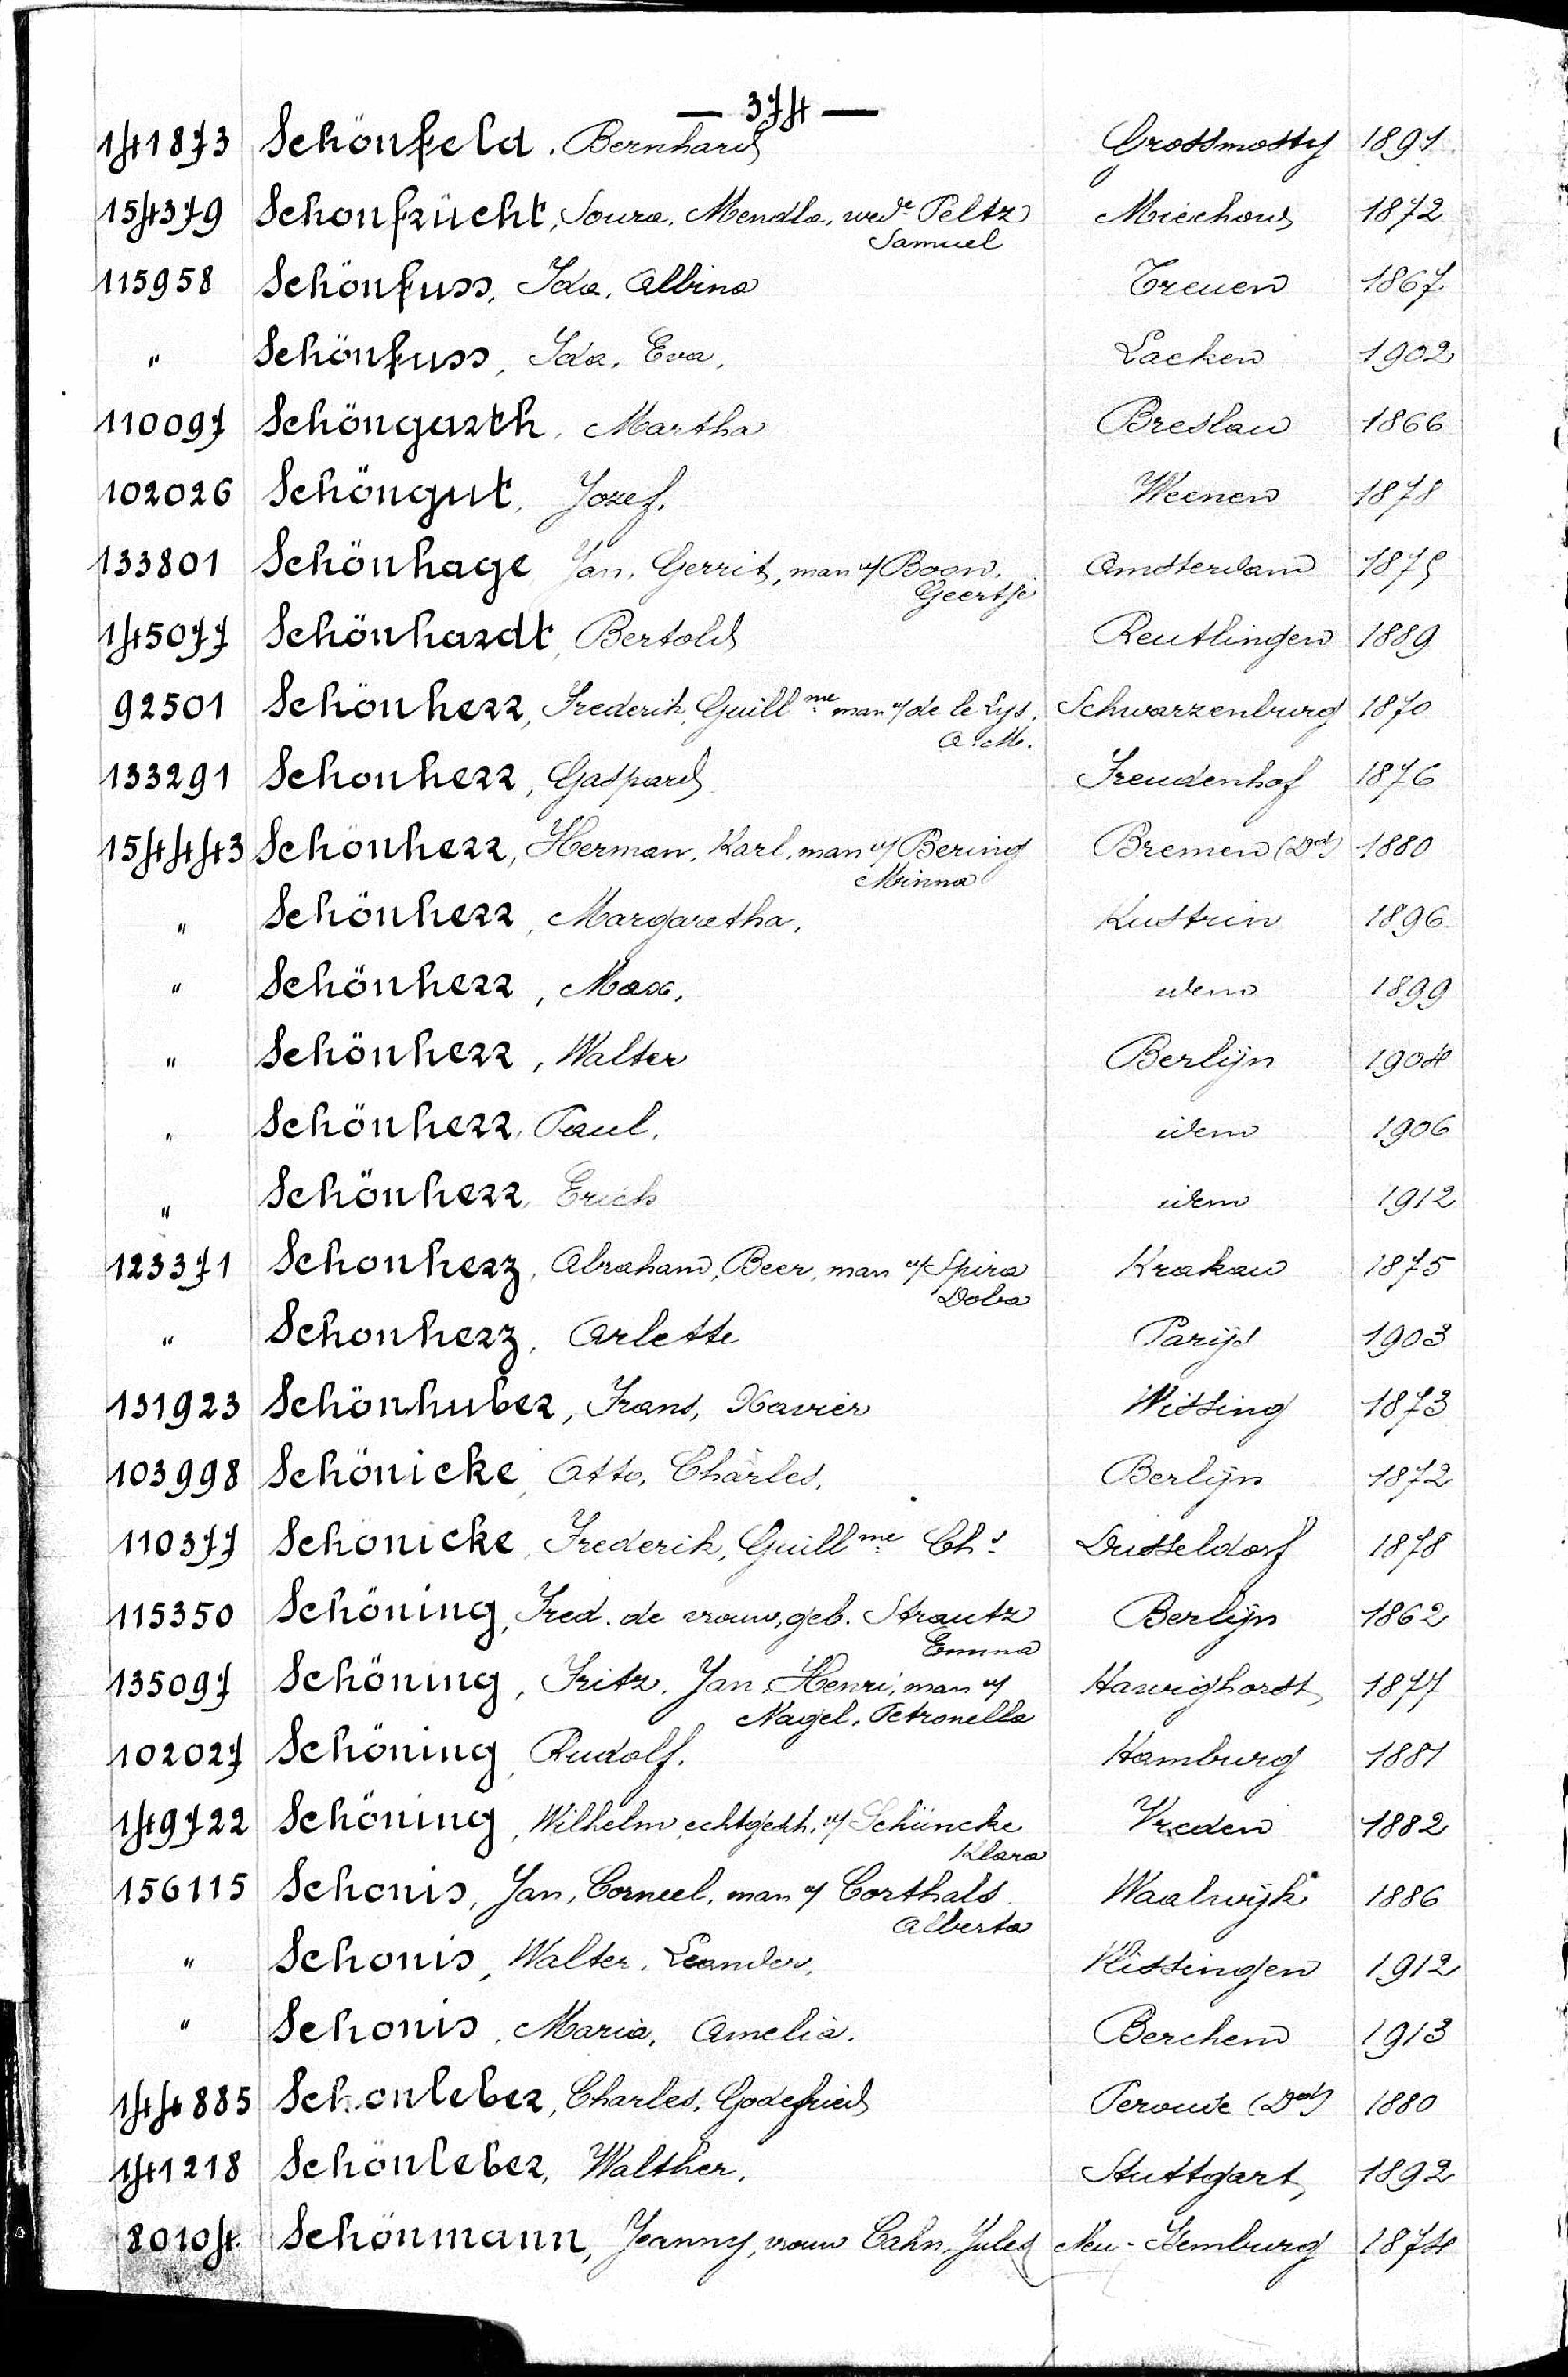 — 374 —
141873 Schönfeld. Bernhard Grossmosty 1891
154379 Schonfrücht, Soura, Mendla, wede Peltz Miechow 1872
Samuel
115958 Schönfuss, Ida, Albina Treuen 1867
" Schönfuss, Ida, Eva, Laeken 1902
110097 Schöngarth, Martha Breslau 1866
102026 Schöngut, Jozef. Weenen 1878
133801 Schönhage Jan, Gerrit, man v/ Boon, Amsterdam 1875
Geertje
145077 Schönhardt, Bertold Reutlingen 1889
92501 Schönherr, Frederik, Guillme man v/ de le Lys. Schwarzenburg 1870
A. M.
133291 Schonherr, Gaspard Freudenhof 1876
154443 Schönherr, Herman, Karl, man v/ Bering Bremen (Dd) 1880
Minna
" Schönherr, Margaretha, Kustrin 1896
" Schönherr, Max, idem 1899
" Schönherr, Walter Berlijn 1904
" Schönherr, Paul, idem 1906
" Schönherr, Erich idem 1912
123371 Schonherz, Abraham, Beer, man v/ Spira Krakau 1875
Doba
" Schonherz, Arlette Parijs 1903
131923 Schönhuber, Frans, Xavier Wissing 1873
103998 Schönicke, Otto, Charles, Berlijn 1872
110377 Schonicke, Frederik, Guillme Chs Dusseldorf 1878
115350 Schöning, Fred. de vrouw, geb. Strautz Berlijn 1862
Emma
135097 Schöning, Fritz, Jan, Henri, man v/ Havighorst 1877
Nagel, Petronella
102027 Schöning, Rudolf. Hamburg 1881
149722 Schöning, Wilhelm, echtgen. v/ Schüncke Vreden 1882
Klara
156115 Schonis, Jan, Corneel, man v/ Corthals Waalwijk 1886
Alberta
" Schonis, Walter, Leander, Vlissingen 1912
" Schonis, Maria, Amelia. Berchem 1913
144885 Schonleber, Charles, Godefried Perouse (Dd) 1880
141218 Schönleber, Walther. Stuttgart 1892
80104 Schönmann, Jeanny, vrouw Cahn, Jules Neu-Isemburg 1874